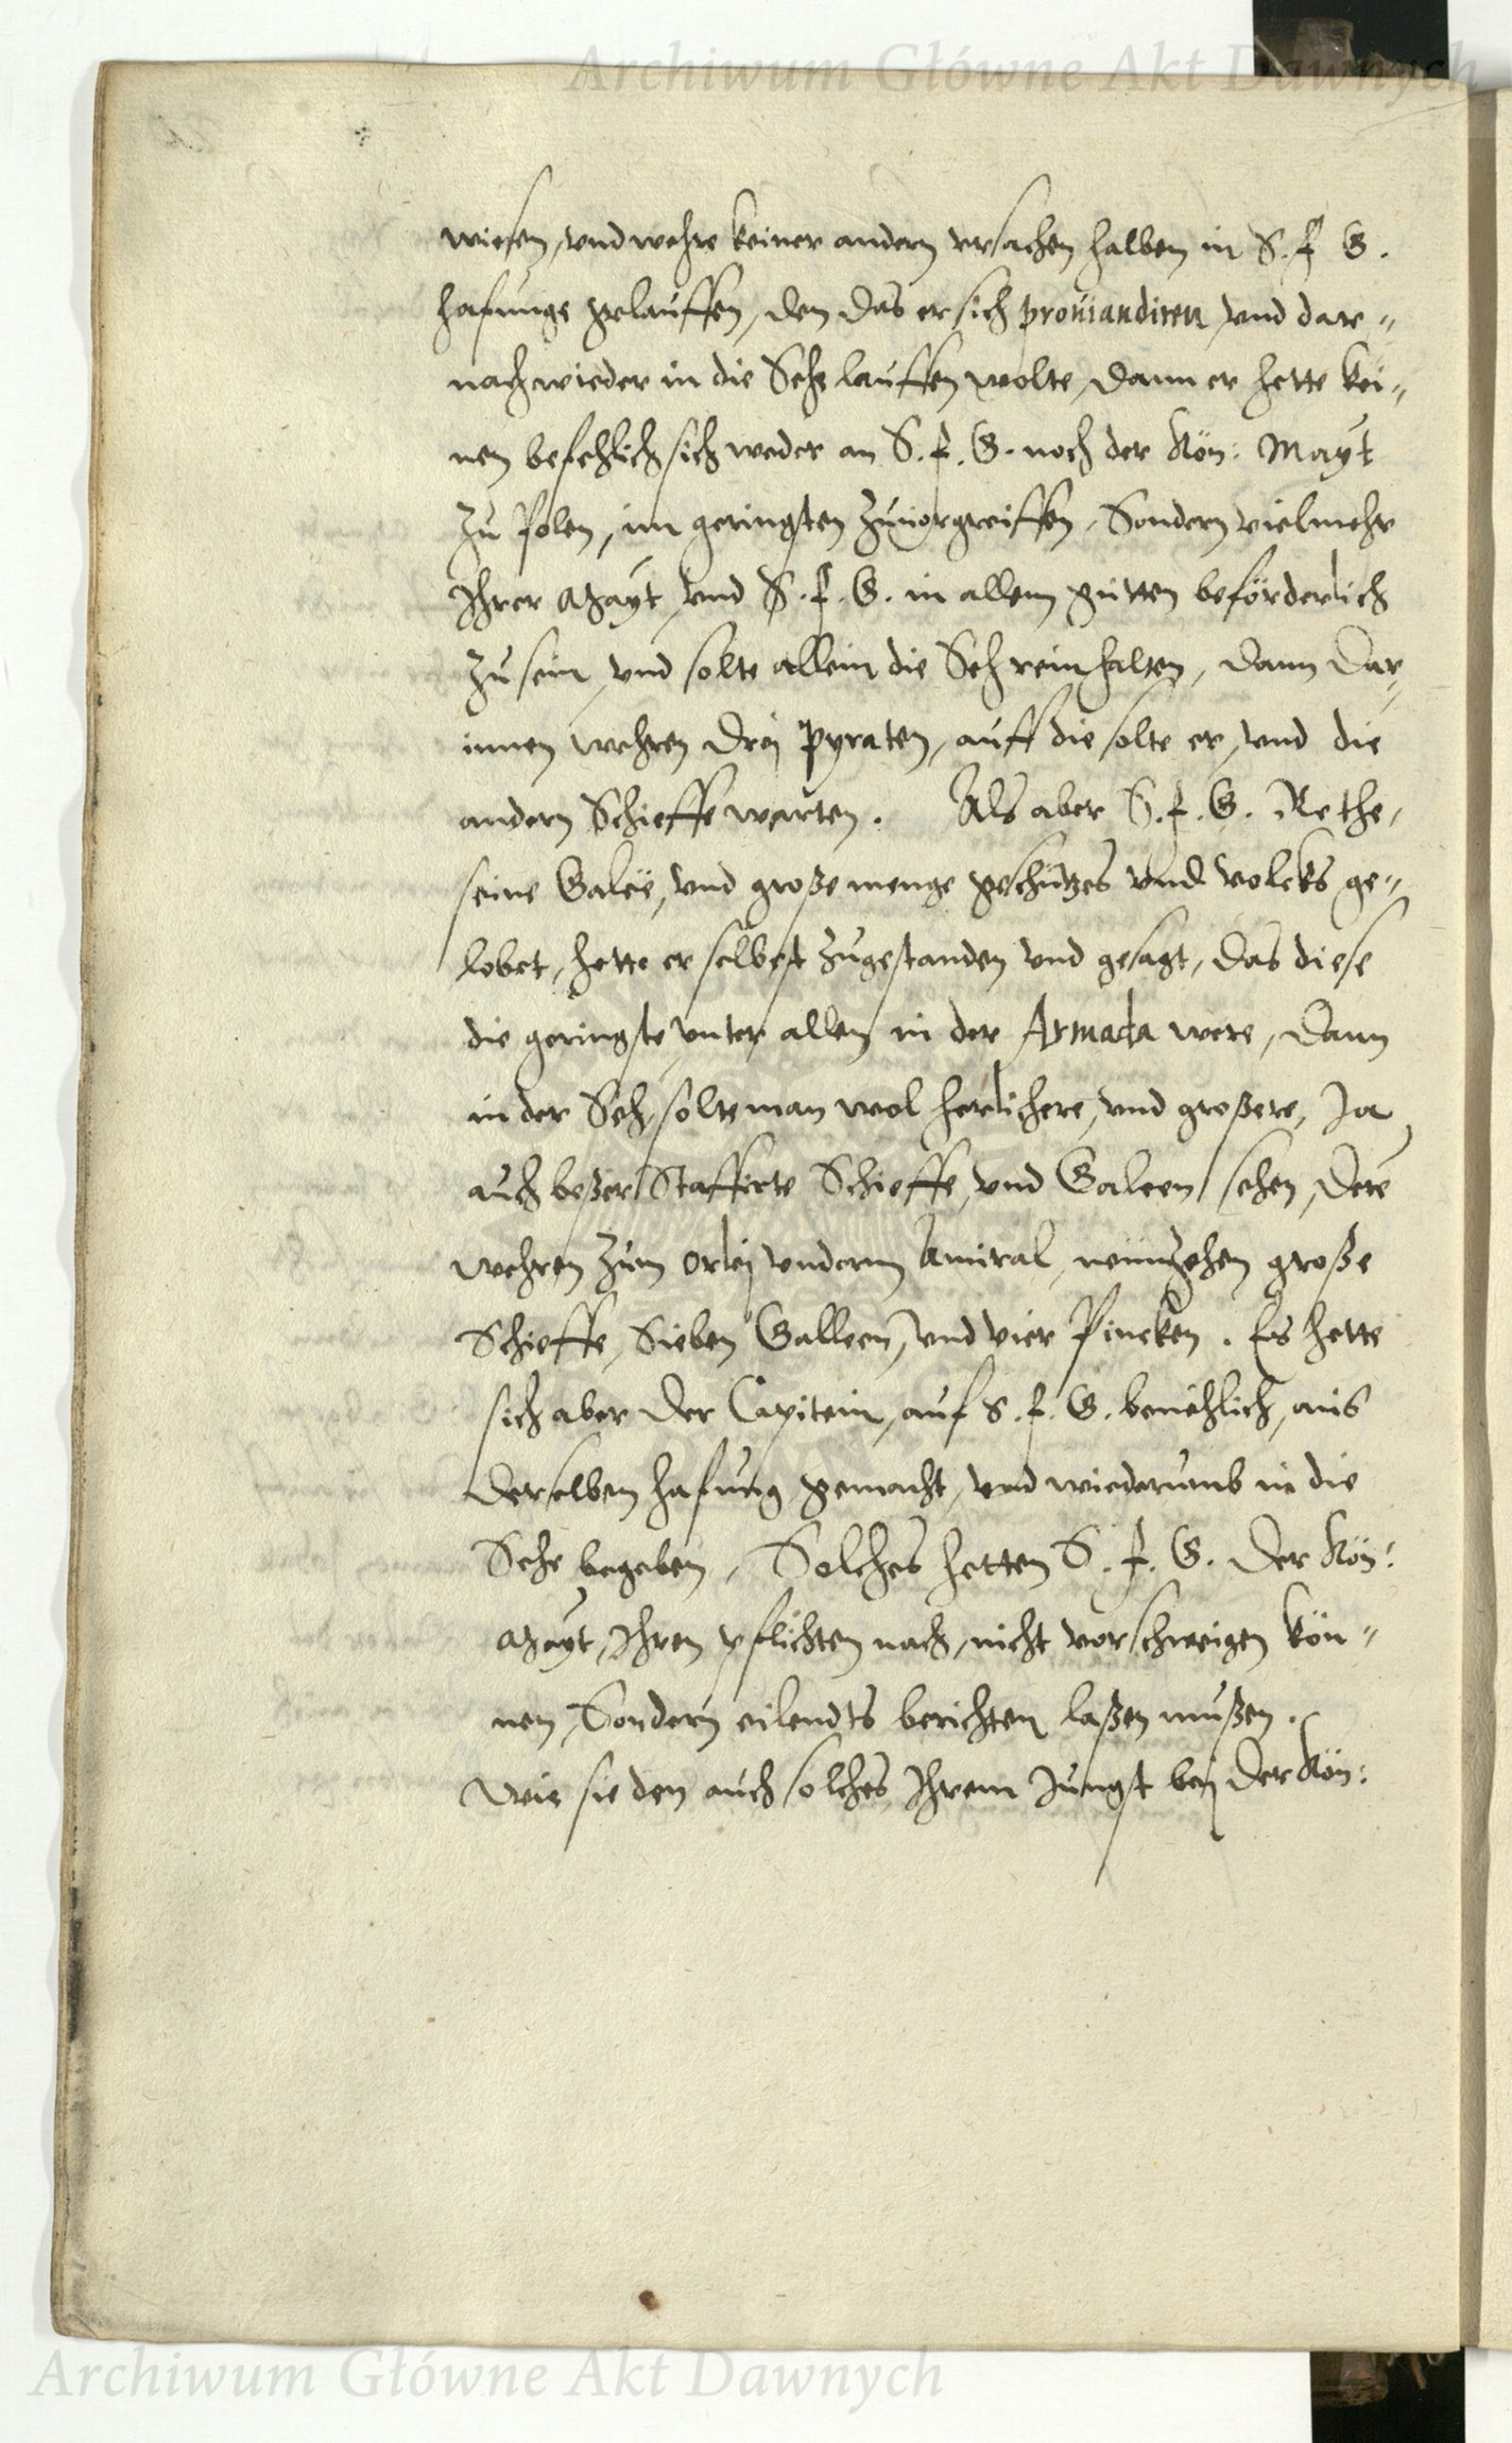 Archiwum Główne Akt Dawnych
wiesen, vnd wehre keiner andern vrsachen halben in S. F. G.
hafunge gelauffen, den das er sich prouiandiren, vnd dar-
nach wieder in die Sehe lauffen wolte, dann er hette kei-
nen befehlich sich weder an S. F. G. noch der Kön: Mayt
zu Polen, im geringsten zuuorgreiffen, Sondern vielmehr
Ihrer Mayt, vnd S. F. G. in allem gutten beförderlich
zu sein, vnd solte allein die Seh rein halten, dann dar-
innen wehren drej Pyraten, auff die solte er, vnd die
andern Schieffe warten. Als aber S. F. G. Rethe,
seine Galee, vnd große menge geschützes vnd volcks ge-
lobet, hette er selbest zugestanden vnd gesagt, das diese
die geringste vnter allen in der Armada were, dann
in der Seh, solte man wol herlichere, vnd großere, Ja
auch beßer Staffirte Schieffe, vnd Galeen sehen, dere
wehren zum orlej vnderm Amiral, neunzehen große
Schieffe, Sieben Galleen, vnd vier Pincken. Es hette
sich aber der Capitein, auf S. F. G. beuehlich, aus
derselben hafung gemacht, vnd wiederumb in die
Sehe begeben, Solches hetten S. F. G. der Kön:
Mayt, Ihren pflichten nach, nicht vorschweigen kön-
nen, Sondern eilendts berichten laßen mußen.
Wie sie den auch solches Ihrem Jungst bej der Kön:
Archiwum Główne Akt Dawnych